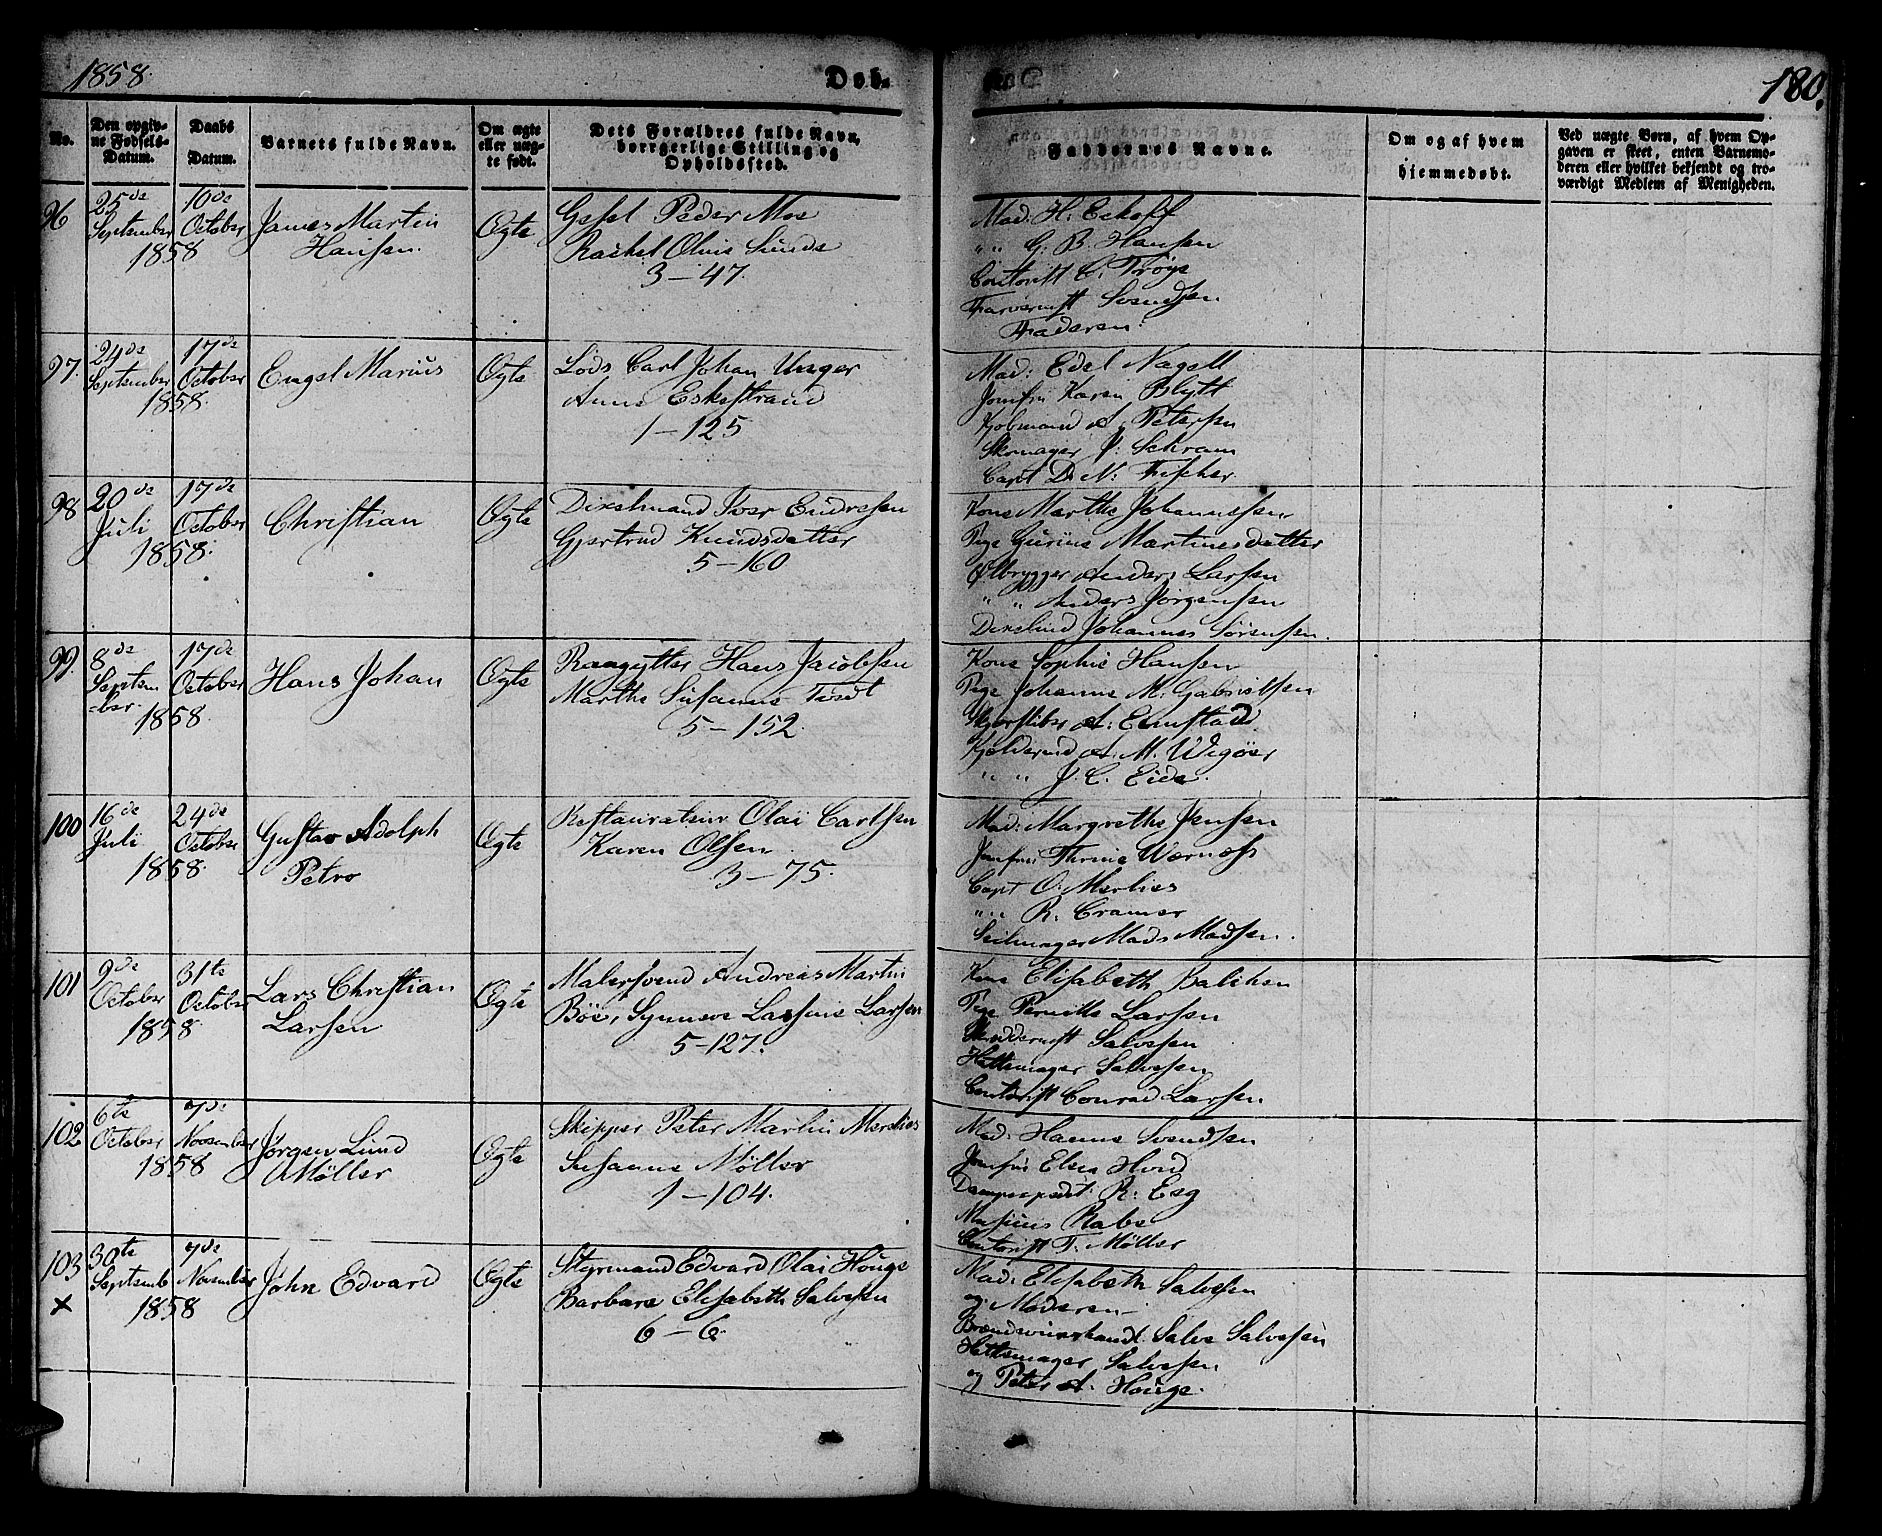 1858.
Døb-
180.
No.
Den opgiv-
ne Fødsels-
Datum.
Daabs
Datum.
Barnets fulde Navn.
Om ægte
eller uæg-
te født.
Dets Forældres fulde Navn,
borgerlige Stilling og
Opholdssted.
Faddernes Navne.
Om og af hvem
hjemmedøbt.
Ved uægte Børn, af hvem Op-
gaven er skeet, enten Barnemo-
deren eller hvilket bekjendt og tro-
værdigt Medlem af Menigheden.
96
25de
September
1858
10de
October
James Martin
Hansen.
Ægte
Peder Moe
Rachel Oline Sunde
3-47.
Mad: H: Eckoff
" " G. B. Hansen
Contorist C. Trøye
Svendsen
Faderen.
97.
24de
September
1858.
17de
October
Engel Marius
Ægte
Lods Carl Johan Unger
Anne Eskestrand
1-125
Mad: Edel Nagell
Jomfru Karen Blytt
Kjøbmand A. Petersen
Skomager J: Schram
Capt D. N. Fischer.
98
20de
Juli
1858.
17de
October
Christian
Ægte
Dixelmand Iver Endresen
Gjertrud Knudsdatter
5-160
Kone Marthe Johannessen
Pige Gurine Martinesdatter
Ølbrygger Anders Larsen
" " Anders Jørgensen
Dixelmd Johannes Sørensen.
99.
8de
Septem
-ber
1858.
17de
October
Hans Johan
Ægte
Hans Jacobsen
Marthe Susanne
5-152.
Kone Sophie Hansen
Pige Johanne M: Gabrielsen
A: Elmstad
A. M. Wigøer
" " J. C. Eide.
100
16de
Juli
1858.
24de
October
Gustav Adolph
Petro
Ægte
Restaurateur Olai Carlsen
Karen Olsen
3-75.
Mad: Margrethe Jensen
Jomfru Thrine Wernøss
Capt O. Merlies
" " R. Cramer
Seilmager Mads Madsen.
101
9de
October
1858
31te
October
Lars Christian
Larsen
Ægte
Malersvend Andreas Martin
Böe, Synneve Larsine Larsen
5-127.
Kone Elisabeth Balchen
Pige Pernille Larsen
Salvesen
Hattemager Salvesen
Contorist Conrad Larsen
102
6te
October
1858
7de
November
Jørgen Lund
Møller
Ægte
Skipper Peter Martin Merlies
Susanne Møller
1-104.
Mad: Hanne Svendsen
Jomfru Elen
R: Esg
Rabe
Contorist T. Møller
103
×
30te
Septemb
1858
7de
November
John Edvard
Ægte
Styrmand Edvard Olai Houge
Barbara Elisabeth Salvesen
6-6.
Mad: Elisabeth Salvesen
og Moderen
Salve Salvesen
Hattemager Salvesen
og Peter A. Houge.